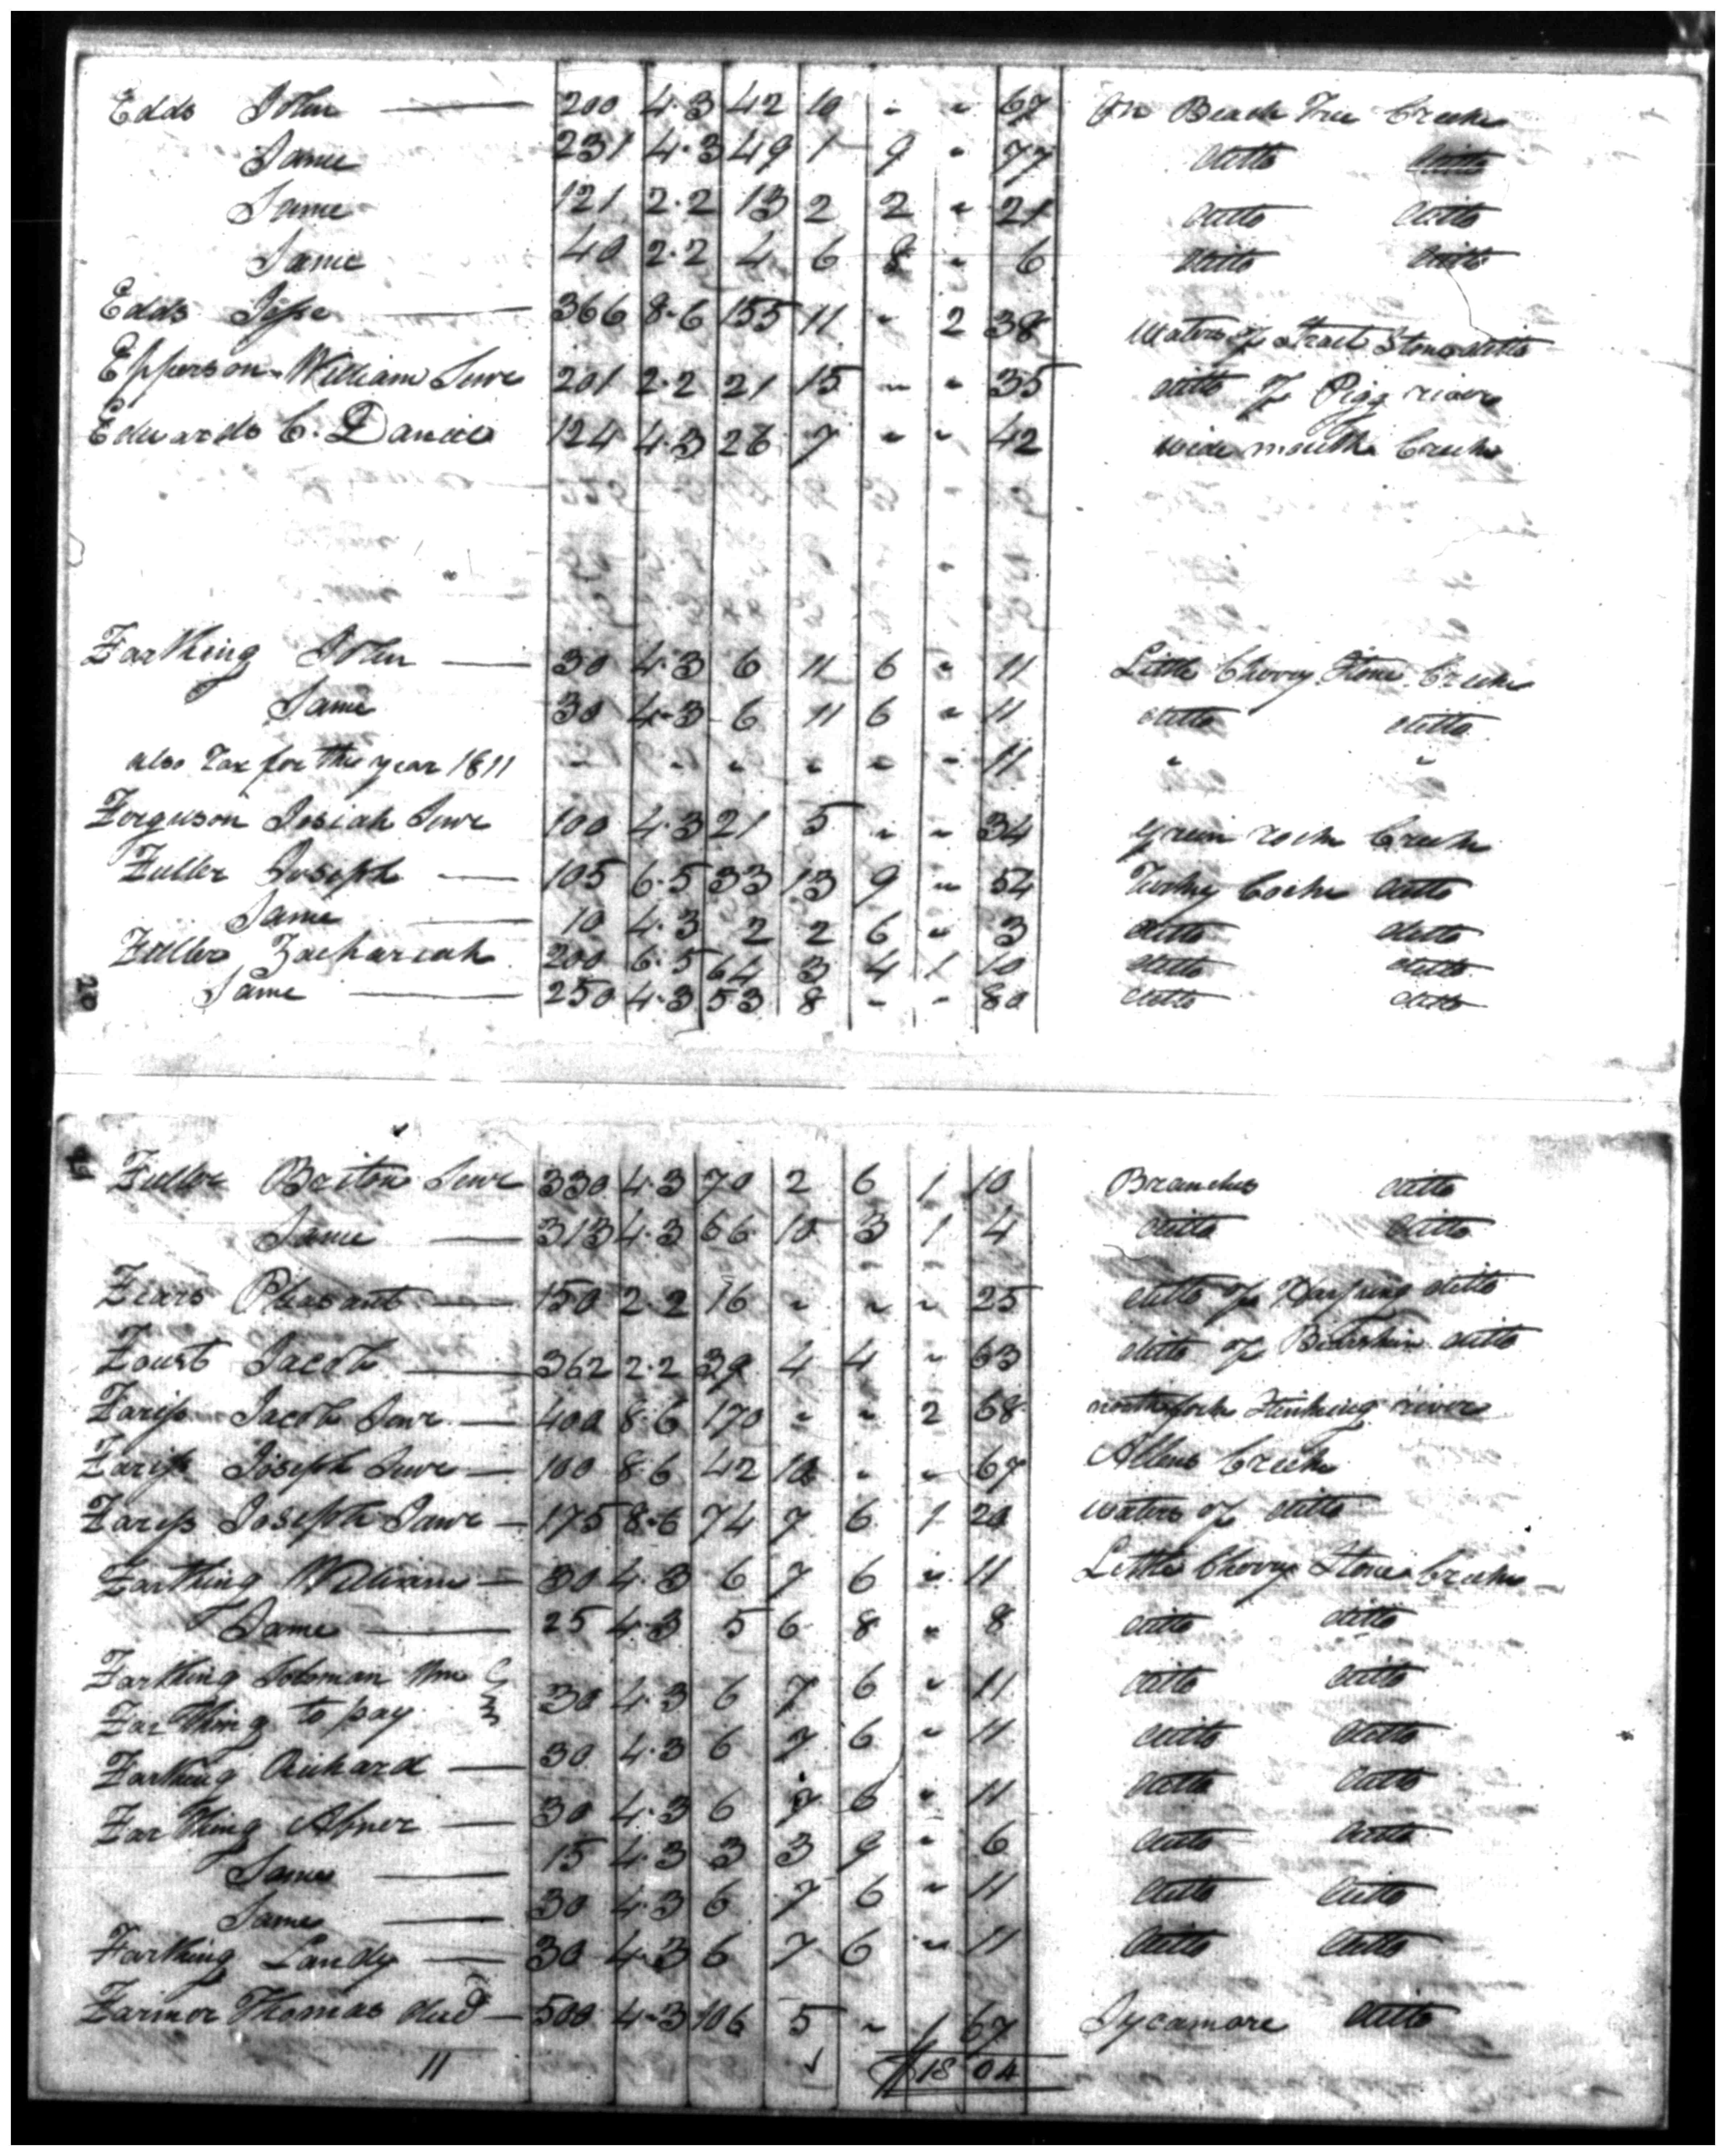 Edds John — 200 4.3 42 10 " " 67 On Beach Tree Creek
Same 231 4.3 49 1 9 " 77 ditto ditto
Same 121 2.2 13 2 2 " 21 ditto ditto
Same 40 2.2 4 6 8 " 6 ditto ditto
Edds Jesse — 366 8.6 155 11 " 2 38 Waters of Strait Stone ditto
Epperson William Senr 201 2.2 21 15 " " 35 ditto of Pigg river
Edwards C. Daniel 124 4.3 26 7 " " 42 wide mouth Creek
Farthing John — 30 4.3 6 11 6 " 11 Little Cherry Stone Creek
Same 30 4.3 6 11 6 " 11 ditto ditto
also Tax for the year 1811 " " " " " " 11 " "
Ferguson Josiah Senr 100 4.3 21 5 " " 34 green rock Creek
Fuller Joseph — 105 6.5 33 13 9 " 54 Turkey Cocke ditto
Same — 10 4.3 2 2 6 " 3 ditto ditto
Fuller Zachariah 200 6.5 64 3 4 1 10 ditto ditto
Same — 250 4.3 53 8 " " 80 ditto ditto
20
Fuller Briton Senr 330 4.3 70 2 6 1 10 Branches ditto
Same — 313 4.3 66 10 3 1 4 ditto ditto
Fears Pleasant — 150 2.2 16 " " " 25 ditto of Harping ditto
Foust Jacob — 362 2.2 39 4 4 " 63 ditto of Bearskin ditto
Fariss Jacob Senr — 400 8.6 170 " " 2 68 north fork Stinking river
Fariss Joseph Junr — 100 8.6 42 10 " " 67 Allens Creek
Fariss Joseph Senr — 175 8.6 74 7 6 1 20 waters of ditto
Farthing William — 30 4.3 6 7 6 " 11 Little Cherry Stone Creek —
Same — 25 4.3 5 6 8 " 8 ditto ditto
Farthing Soloman Wm
Farthing to pay 30 4.3 6 7 6 " 11 ditto ditto
Farthing Richard — 30 4.3 6 7 6 " 11 ditto ditto
Farthing Abner — 30 4.3 6 7 6 " 11 ditto ditto
Same — 15 4.3 3 3 9 " 6 ditto ditto
Same — 30 4.3 6 7 6 " 11 ditto ditto
Farthing Landy — 30 4.3 6 7 6 " 11 ditto ditto
Farmer Thomas decd — 500 4.3 106 5 " 1 67 Sycamore ditto
11 $18 04